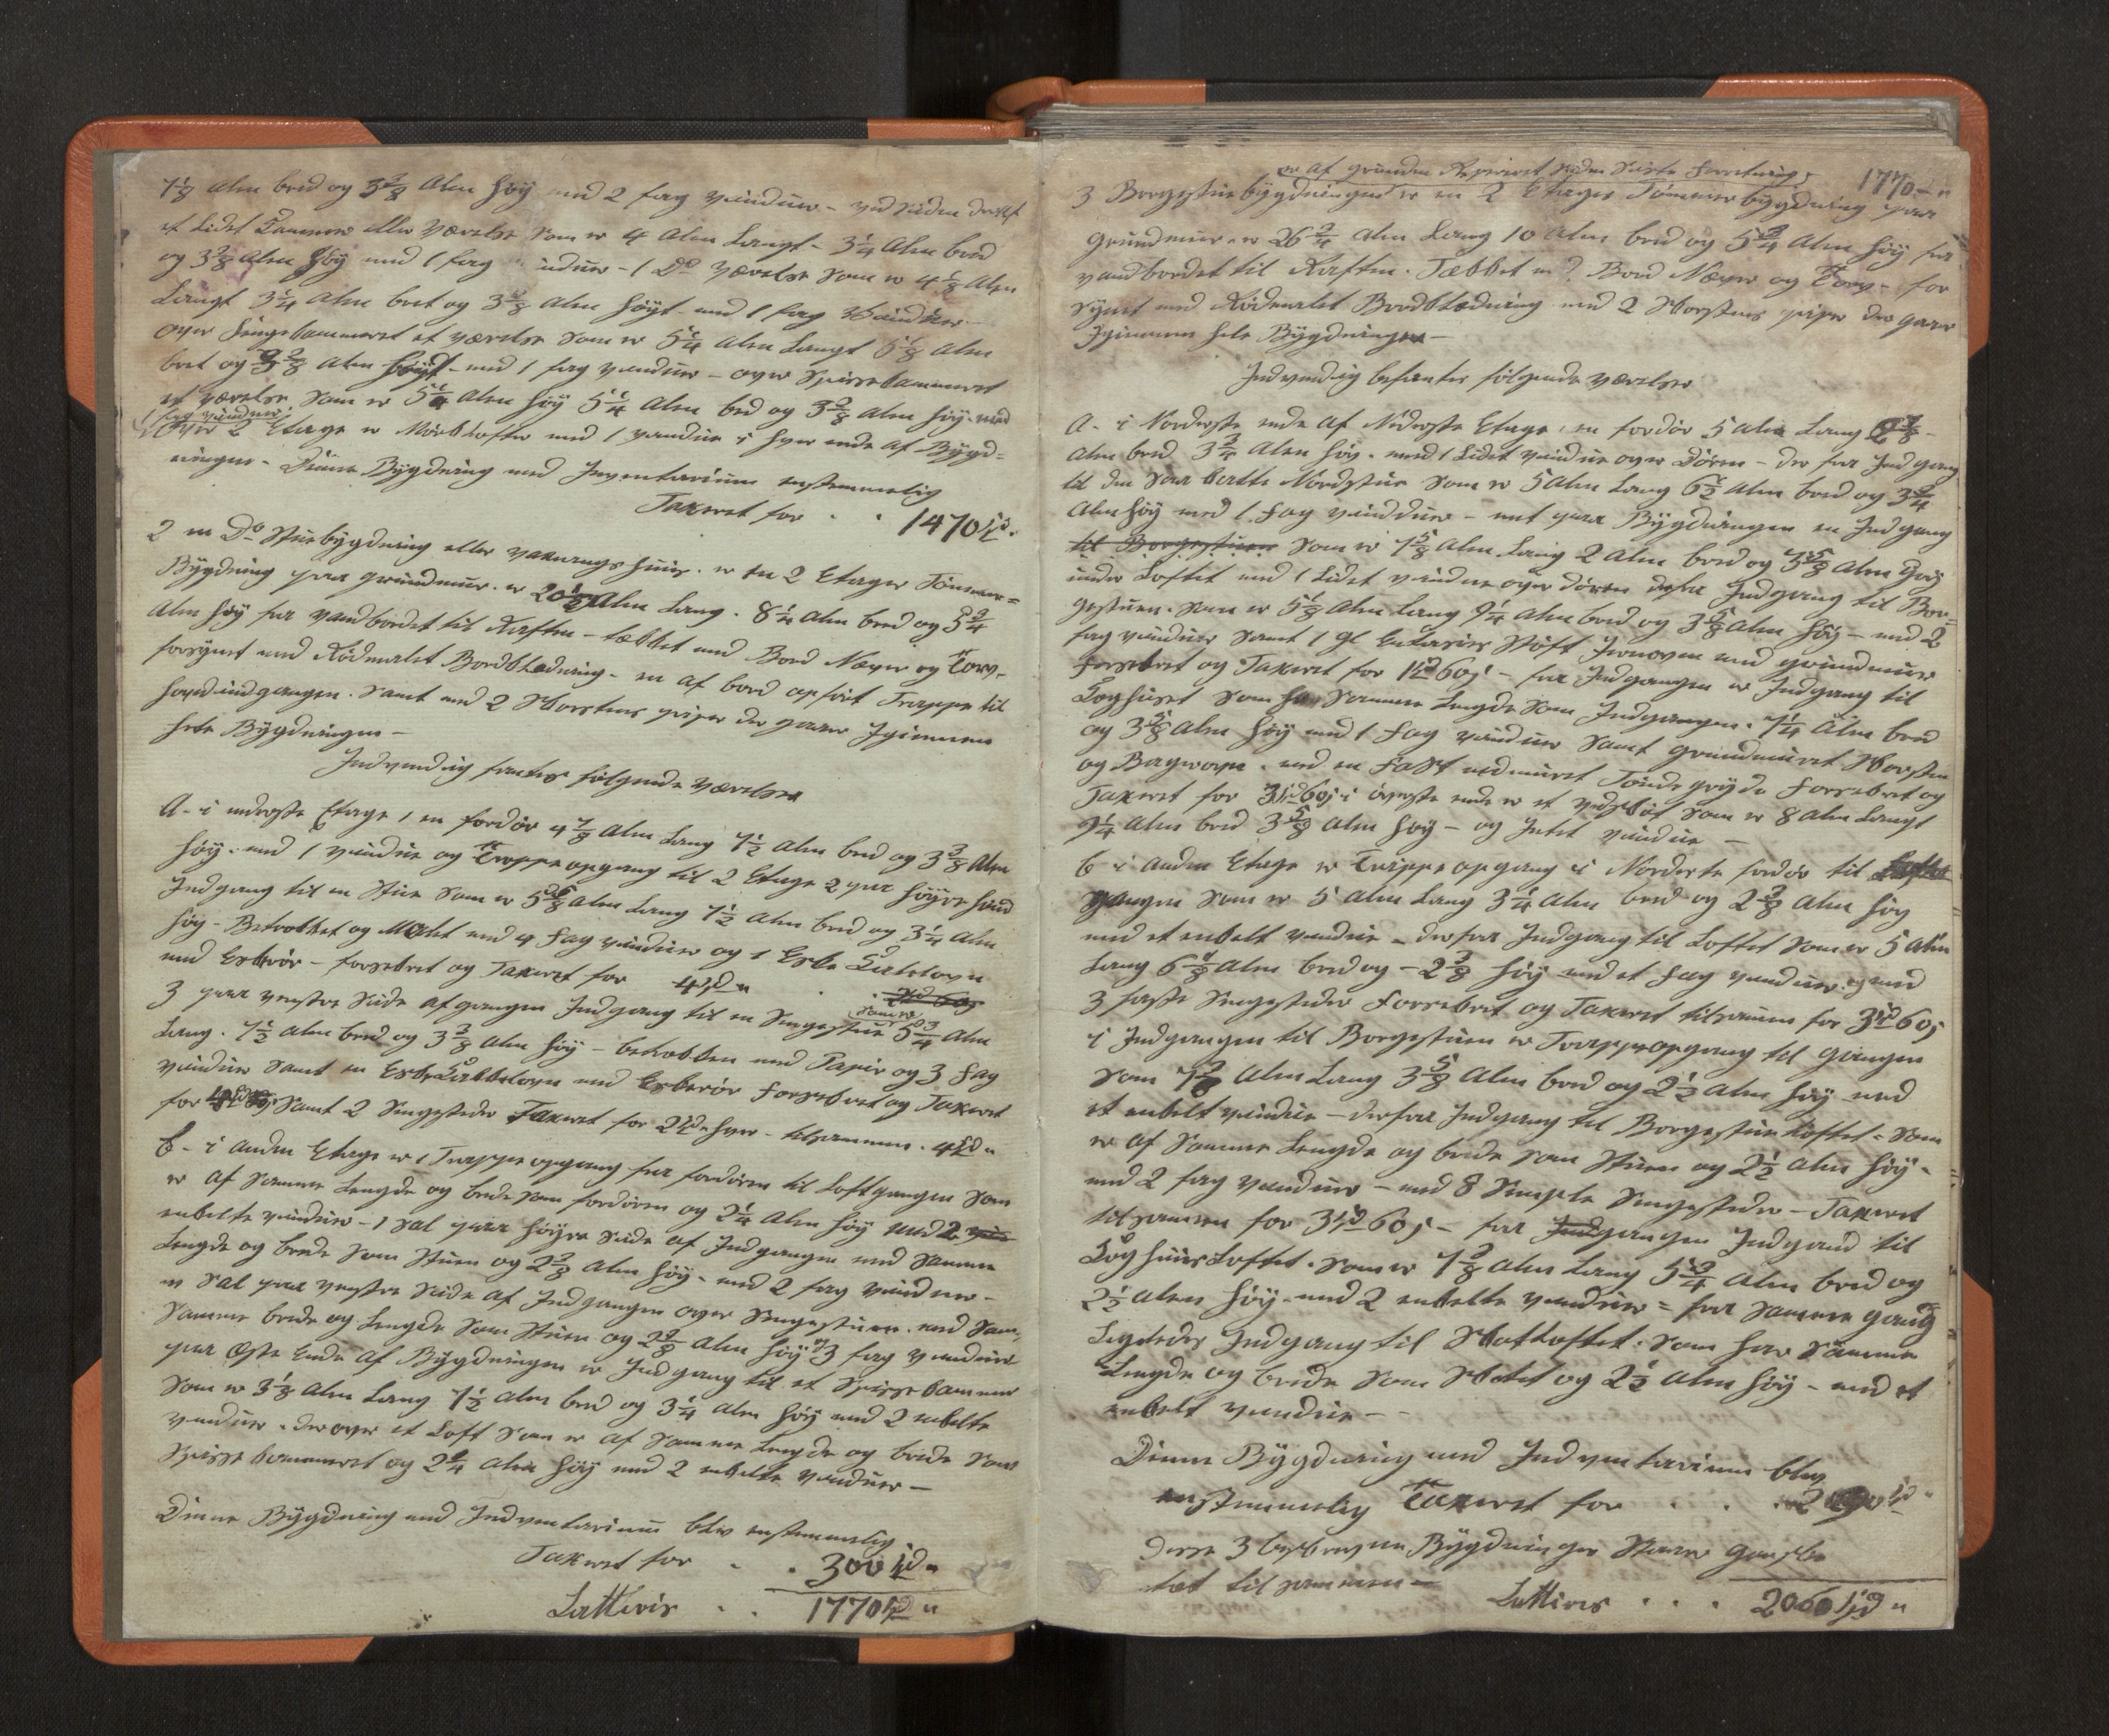 7 1/8 Alen bred og 3 3/8 Alen höy med 2 fag vinduer - ved Siden deraf
et Lidet Kammer eller Værelse som er 4 Alen Langt - 3 1/4 Alen bred
og 3 3/8 Alen höy med 1 fag induer - 1 Do Værelse som er 4 1/8 Alen
Langt 3 1/4 Alen bret og 3 3/8 Alen höyt - med 1 fag Vinduer -
over Sengekammeret et værelse som er 5 1/4 Alen Langt 5 1/8 Alen
bret og 3 3/8 Alen höyt - med 1 fag vinduer - over Spissekammeret
et værelse som er 5 1/4 Alen höy 5 1/4 Alen bred og 3 3/8 Alen höy med
1 fag vinduer
Over 2 Etage er Mörklofter med 1 vindue i hver ende af Bygd=
ningen - Denne Bygdning med Inventarium enstemmelig
Taxeret for . . 1470 Spd.
2 en Do Stuebygdning eller vaaningshuus er en 2 Etager Tömmer=
Bygdning paa grundmur. er 20 1/8 Alen Lang. 8 1/4 Alen bred og 5 3/4
Alen höy fra vandbordet til Raften - tekket med Bord Næver og Torv -
forsynet med Rödmalet Bordklædning - en af bord opfört Trappe til
hovedindgangen. Samt med 2 Skorstens piper der gaar Igiennem
hele Bygdningen -
Indvendig fantes fölgende værelser
A - i nederste Etage 1 en fordör 4 7/8 Alen Lang 7 1/2 Alen bred og 3 3/8 Alen
höy. med 1 vindue og Trappeopgang til 2 Etage 2 paa höyre haand
Indgang til en Stue som er 5 5/8 Alen Lang 7 1/2 Alen bred og 3 1/4 Alen
höy - Betrækket og Malet med 4 fag vinduer og 1 Eske Kakelovn
med Eskerör - forsekret og Taxeret for 4 Spd "
3 paa venstre Side af gangen Indgang til en Sengestue som er 5 3/4 Alen
Lang. 7 1/2 Alen bred og 3 3/8 Alen höy - betrækken med Papir og 3 fag
vinduer samt en Eske Kakkelovn med Eskerör Forsekret og Taxeret
for 4 Spd 60s samt 2 Sengesteder Taxeret for 2 Spd hver - tilsammen. 4 Spd "
b - i anden Etage er 1 Trappeopgang fra fordören til Loftgangen som
er af samme Lengde og brede som fordören og 2 1/4 Alen höy med 2
enkelte vinduer - 1 sal paa höyre side af Indgangen med samme
Lengde og brede som stuen og 2 3/8 Alen höy - med 2 fag vinduer -
en Sal paa venstre side af Indgangen over Sengestuen. med Sam,
samme brede og Lengde som Stuen og 2 3/8 Alen höy og 3 fag vinduer
paa Øste Ende af Bygdningen er Indgang til et Spissekammer
som er 3 1/8 Alen Lang 7 1/2 Alen bred og 3 1/4 Alen höy med 2 enkelte
vinduer. derover et Loft som er af samme Lengde og brede som
Spissekammeret og 2 1/4 Alen höy med 2 enkelte vinduer -
Denne Bygdning med Indventarium blev enstemmelig
Taxeret for . . 300 Spd "
Lattiris . . 1770 Spd "
er af grunden Repareret siden Siste forretning 1770 - "
3 Borgestuebygdningen er en 2 Etages Tömmerbygdning paa
Grundmur - er 26 3/4 Alen Lang 10 Alen bred og 5 3/4 Alen höy fra
vandbordet til Raften. Tækket med Bord Næver og Torv - for
synet med Rödmalet Bordklædning med 2 Skorstens piper der gaar
Igiennem hele Bygdningen -
Indvendig befantes fölgende værelser
A - i Norderste ende af Nederste Etage 1 en fordör 5 Alen Lang 6 7/8
Alen bred 3 3/4 Alen höy. med 1 Lidet vindue over Dören - der fra Indgang
til den saa kalte Nordstue som er 5 Alen Lang 6 1/2 Alen bred og 3 3/4
Alen höy med 1 fag vindduer - mit paa Bygdningen en Indgang
til Borgestuen som er 7 5/8 Alen Lang 2 Alen bred og 3 5/8 Alen höy
under Loftet med 1 Lidet vindue over dören defra Indgang til Bor=
gestuen. som er 5 1/8 Alen Lang 9 1/4 Alen bred og 3 5/8 Alen höy - med 2
fag vinduer samt 1 gl Jernoven med grundmuer
forsekret og Taxeret for 1 Spd 60s - fra Indgangen er Indgang til
Koghuset som har samme Lengde som Indgangen. 7 1/4 Alen bred
og 3 5/8 Alen höy med 1 fag vinduer samt grundmuret Skorsten
og Bagerovn. med en fast indmuret Töndegryde Forsekret og
Taxeret for 3 Spd 60s i överste ende er et vedskot som er 8 Alen Langt
9 1/4 Alen bred 3 5/8 Alen höy - og Intet vindue -
b - i anden Etage er Trappeopgang i Norderste fordör til
gangen som er 5 Alen Lang 3 1/4 Alen bred og 2 3/8 Alen höy
med et enkelt vindue - derfra Indgang til Loftet som er 5 Alen
Lang 6 4/8 Alen bred og - 2 3/8 höy med et fag vinduer. og med
3 faste Sengesteder Forsekret og Taxeret tilsamen for 3 Spd 60s
i Indgangen til Borgestuen er Trappeopgang til gangen
som 7 3/8 Alen Lang 3 5/8 Alen bred og 2 1/2 Alen höy med
et enkelt vindue - derfra Indgang til Borgestue Loftet = som
er af samme Lengde og brede som Stuen og 2 1/2 Alen höy -
med 2 fag vinduer - med 8 Simple Sengesteder - Taxeret
tilsamen for 3 Spd 60s - fra Indgangen Indgand til
Koghuus Loftet. som er 7 3/8 Alen Lang 5 3/4 Alen bred og
2 1/2 Alen höy - med 2 enkelte vinduer = fra samme gang
Ligeledes Indgang til Skotloftet. som har samme
Lengde og brede som Skotet og 2 1/2 Alen höy - med et
enkelt vindue -
Denne Bygdning med Indventarium blev
enstemmelig Taxeret for . . . 290 Spd "
Disse 3 beskrevne Bygdninger staar ganske
tæt tilsammen -
Lattires . . . 2060 Spd "